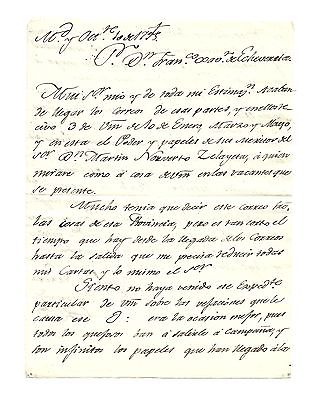 Md y Oct.e 10 de 1775
S.or Dn Fran.co Xav.r de Echeverria
Mui S.or mio y de toda mi Estimaz.n Acaban
de llegar los Correos de esas partes, y en ellos re
civo 3 de Vm de 10 de Enero, Marzo y Mayo,
y en esta el Poder y papeles de sus meritos del
S.or Dn Martin Navarro Zelayeta, á quien
mirare como á cosa de Vm en las vacantes que
se presente.
Mucho tenia que decir este correo so
las cosas de esa Provincia, pero es tan corto el
tiempo que hay desde la llegada de los Correos
hasta la salida que me precisa reducir todas
mis Cartas, y lo mismo el S.or
Siento no haya venido ese Expedte
particular de Vm sobre las vejaciones que le
causa ese era la ocasion mejor, pues
todos los quejosos han á salirle á campaña, y
son infinitos los papeles que han llegado á los